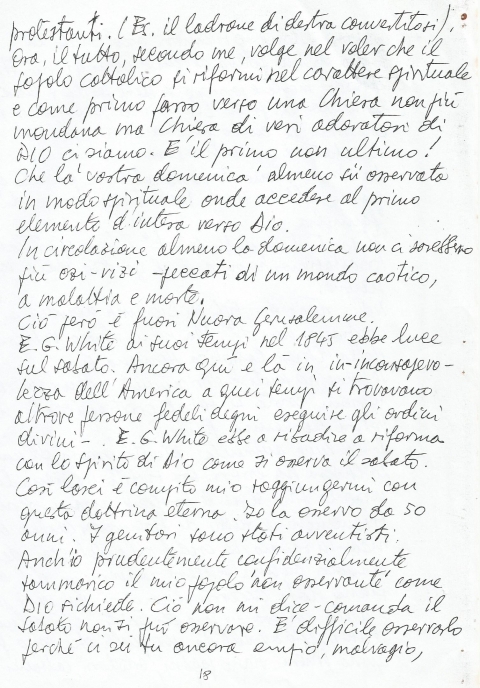 protestanti. (Es. il ladrone di destra convertitosi).
Ora, il tutto, secondo me, volge nel voler che il
popolo cattolico si riformi nel carattere spirituale
e come primo passo verso una Chiesa non più
mondana ma Chiesa di veri adoratori di
DIO ci siamo. E' il primo non ultimo!
Che la 'vostra domenica' almeno sii osservata
in modo spirituale onde accedere al primo
elemento d'intesa verso Dio.
In circolazione almeno la domenica non ci sarebbero
più ozi-vizi - peccati di un mondo caotico,
a malattia e morte.
Ciò però è fuori Nuova Gerusalemme.
E.G. White ai suoi tempi nel 1845 ebbe luce
sul sabato. Ancora qui e là in in-inconsapevo-
lezza dell'America a quei tempi si trovavano
altrove persone fedeli degni eseguire gli ordini
divini-. E.G. White ebbe a ribadire a riforma
con lo spirito di Dio come si osserva il sabato.
Così è compito mio raggiungermi con
questa dottrina eterna. Io la osservo da 50
anni. I genitori sono stati avventisti.
Anch'io prudentemente confidenzialmente
rammarico il mio popolo non osservante come
DIO richiede. Ciò non mi dice-comanda il
sabato non si può osservare. E' difficile osservarlo
perché ci sei tu ancora empio, malvagio,
18